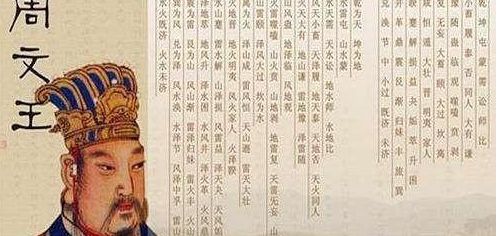 周文王
乾 坤 屯 蒙 需 讼 师 比
小畜 履 泰 否 同人 大有 谦
豫 随 蛊 临 观 噬嗑 贲 剥
复 无妄 大畜 颐 大过 坎 离
咸 恒 遁 大壮 晋 明夷 家人
睽 蹇 解 损 益 夬 姤 萃 升 困
井 革 鼎 震 艮 渐 归妹 丰 旅 巽
兑 涣 节 中 小过 既济 未济
乾为天 坤为地
水雷屯 山水蒙
水天需 天水讼 地水师 水地比
风天小畜 天泽履 地天泰 天地否 天火同人
火天大有 地山谦 雷地豫 泽雷随
山风蛊 地泽临 风地观
火雷噬嗑 山火贲 山地剥 地雷复 天雷无妄 山
山雷颐 泽风大过 坎为水
离为火 泽山咸 雷风恒 天山遁 雷天大壮
火地晋 地火明夷 风火家人 火泽睽
水山蹇 雷水解 山泽损 风雷益 泽天夬 天风
泽地萃 地风升 泽水困 水风井 泽火革 火风
震为雷 艮为山 风山渐 雷泽归妹 雷火丰 火山
巽为风 兑为泽 风水涣 水泽节 风泽中孚 雷山
水火既济 火水未济